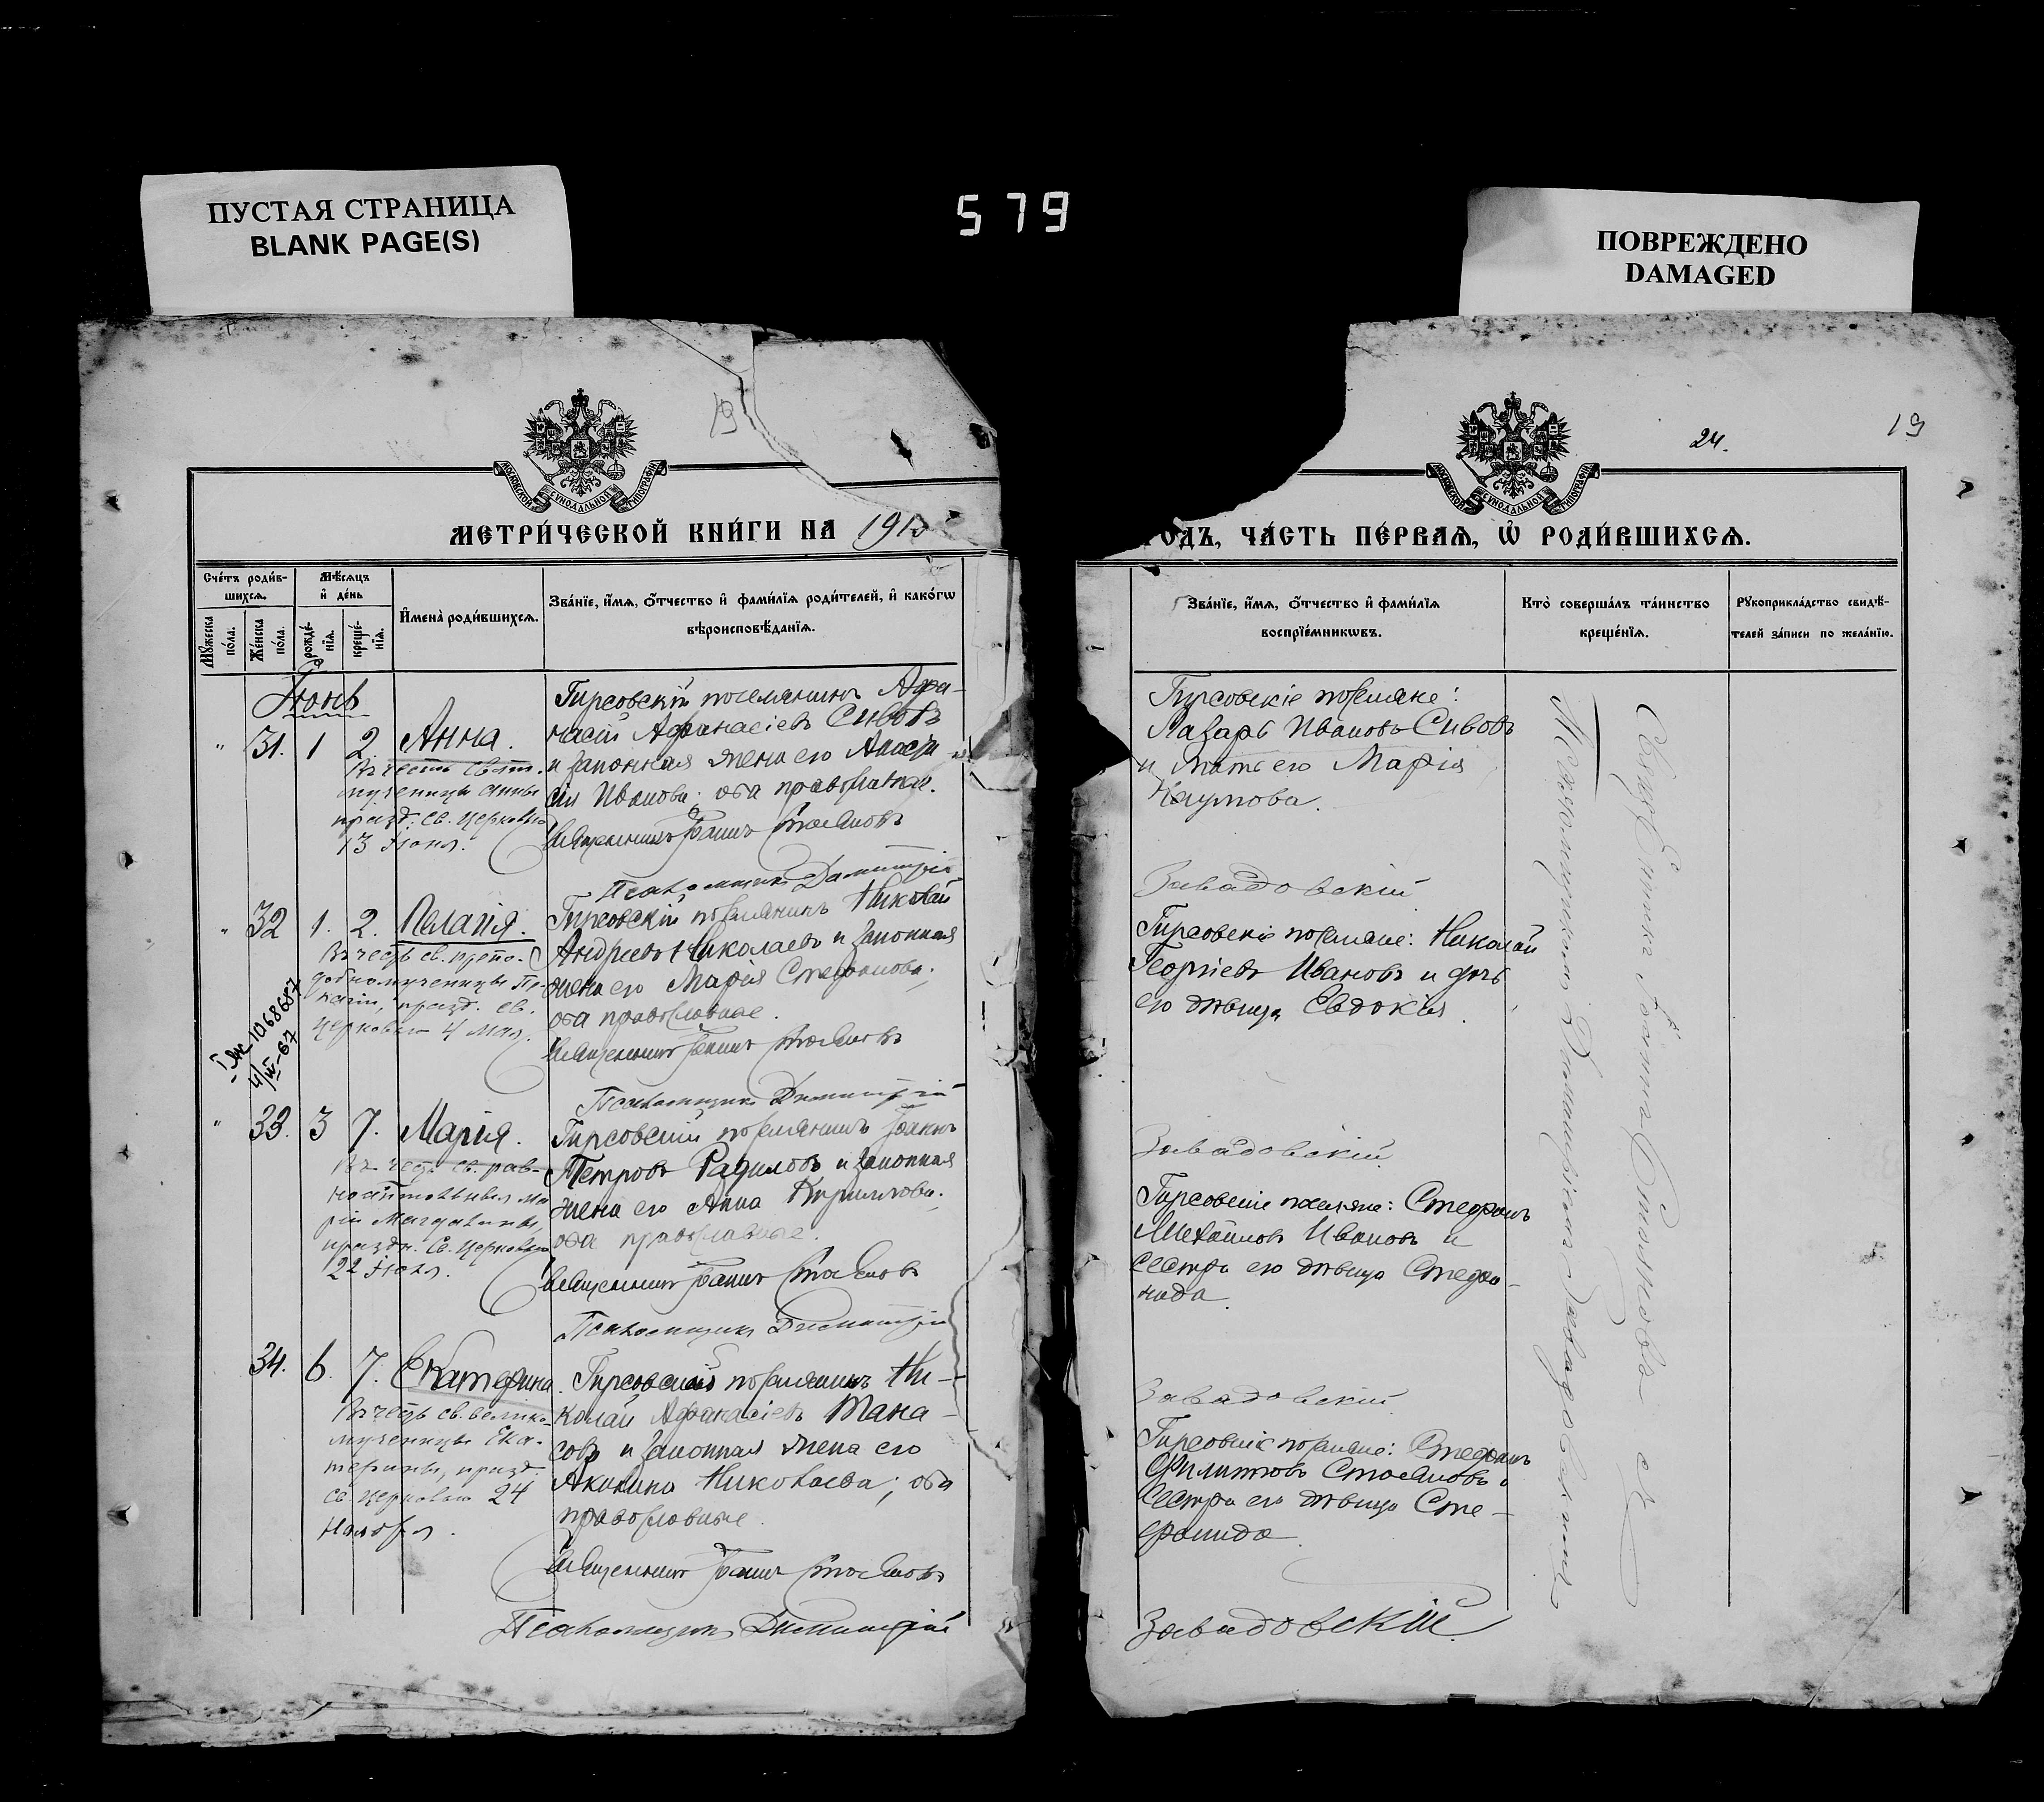 ПУСТАЯ СТРАНИЦА
BLANK PAGE(S)
579
ПОВРЕЖДЕНО
DAMAGED
19
МОСКОВСКОЙ СѴНОДАЛЬНОЙ ТИПОГРАФІИ
МЕТРИ́ЧЕСКОЙ КНИ́ГИ НА 191
Сче́тъ роди́в-
шихсѧ.
Мꙋ́жеска по́ла.
Же́нска по́ла.
Мѣ́сѧцъ
и҆ де́нь
рожде́-
нїѧ.
креще́-
нїѧ.
И҆мена̀ роди́вшихсѧ.
Зва́нїе, и҆́мѧ, ѻ҆́тчество и҆ фами́лїѧ роди́телей, и҆ како́гѡ
вѣроисповѣ́данїѧ.
Іюнь
" 31. 1 2. Анна.
Въ честь Свят.
мученицы Анны
празд. Св. Церковью
13 Іюня.
Гирсовскій поселянинъ Афа-
насій Афанасіевъ Сивовъ
и законная жена его Анаста
сія Иванова; оба православные.
Священникъ Іоаннъ Стояновъ
Псаломщикъ Димитрій
" 32 1. 2. Пелагія.
Въ честь св. препо-
добномученицы Пе-
лагіи, празд. св.
Церковью 4 Мая.
Гирсовскій поселянинъ Николай
Андреевъ Николаевъ и законная
жена его Марія Стефанова;
оба православные.
Священникъ Іоаннъ Стояновъ
Псаломщикъ Димитрій
1068687
4/IV-67
" 33. 3 7. Марія.
Въ честь св. рав-
ноапостольныя Ма
ріи Магдалины,
праздн. Св. Церковью
22 Іюля.
Гирсовскій поселянинъ Іоаннъ
Петровъ Радиловъ и законная
жена его Анна Кириллова;
оба православные.
Священникъ Іоаннъ Стояновъ
Псаломщикъ Димитрій
34. 6. 7. Екатерина.
Въ честь св. велико-
мученицы Ека-
терины, празд.
св. Церковью 24
Ноября.
Гирсовскій поселянинъ Ни-
колай Афанасіевъ Тана-
совъ и законная жена его
Акилина Николаева; оба
православные.
Священникъ Іоаннъ Стояновъ
Псаломщикъ Димитрій
24.
19
МОСКОВСКОЙ СѴНОДАЛЬНОЙ ТИПОГРАФІИ
ГОДЪ, ЧА́СТЬ ПЕ́РВАѦ, Ѡ҆ РОДИ́ВШИХСѦ.
Зва́нїе, и҆́мѧ, ѻ҆́тчество и҆ фами́лїѧ
воспрїе́мникѡвъ.
Кто̀ соверша́лъ та́инство
креще́нїѧ.
Рꙋкоприкла́дство свидѣ́-
телей за́писи по жела́нїю.
Гирсовскіе поселяне:
Лазарь Ивановъ Сивовъ
и мать его Марія
Наумова.
Завадовскій
Гирсовскіе поселяне: Николай
Георгіевъ Ивановъ и дочь
его дѣвица Евдокія.
Завадовскій
Гирсовскіе поселяне: Стефанъ
Михайловъ Ивановъ и
сестра его дѣвица Стефа-
нида.
Завадовскій
Гирсовскіе поселяне: Стефанъ
Филипповъ Стояновъ и
сестра его дѣвица Сте-
фанида.
Завадовскій
Священникъ Іоаннъ Стояновъ съ
Псаломщикомъ Димитріемъ Завадовскимъ